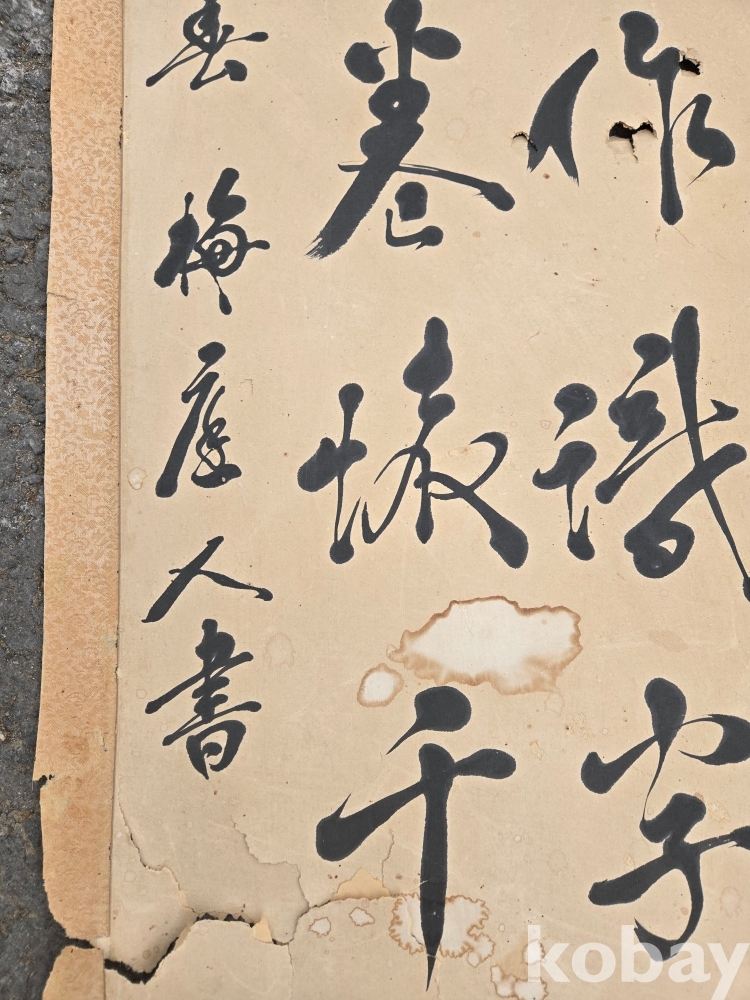 作識字
卷懷千
梅庭人書
kobay